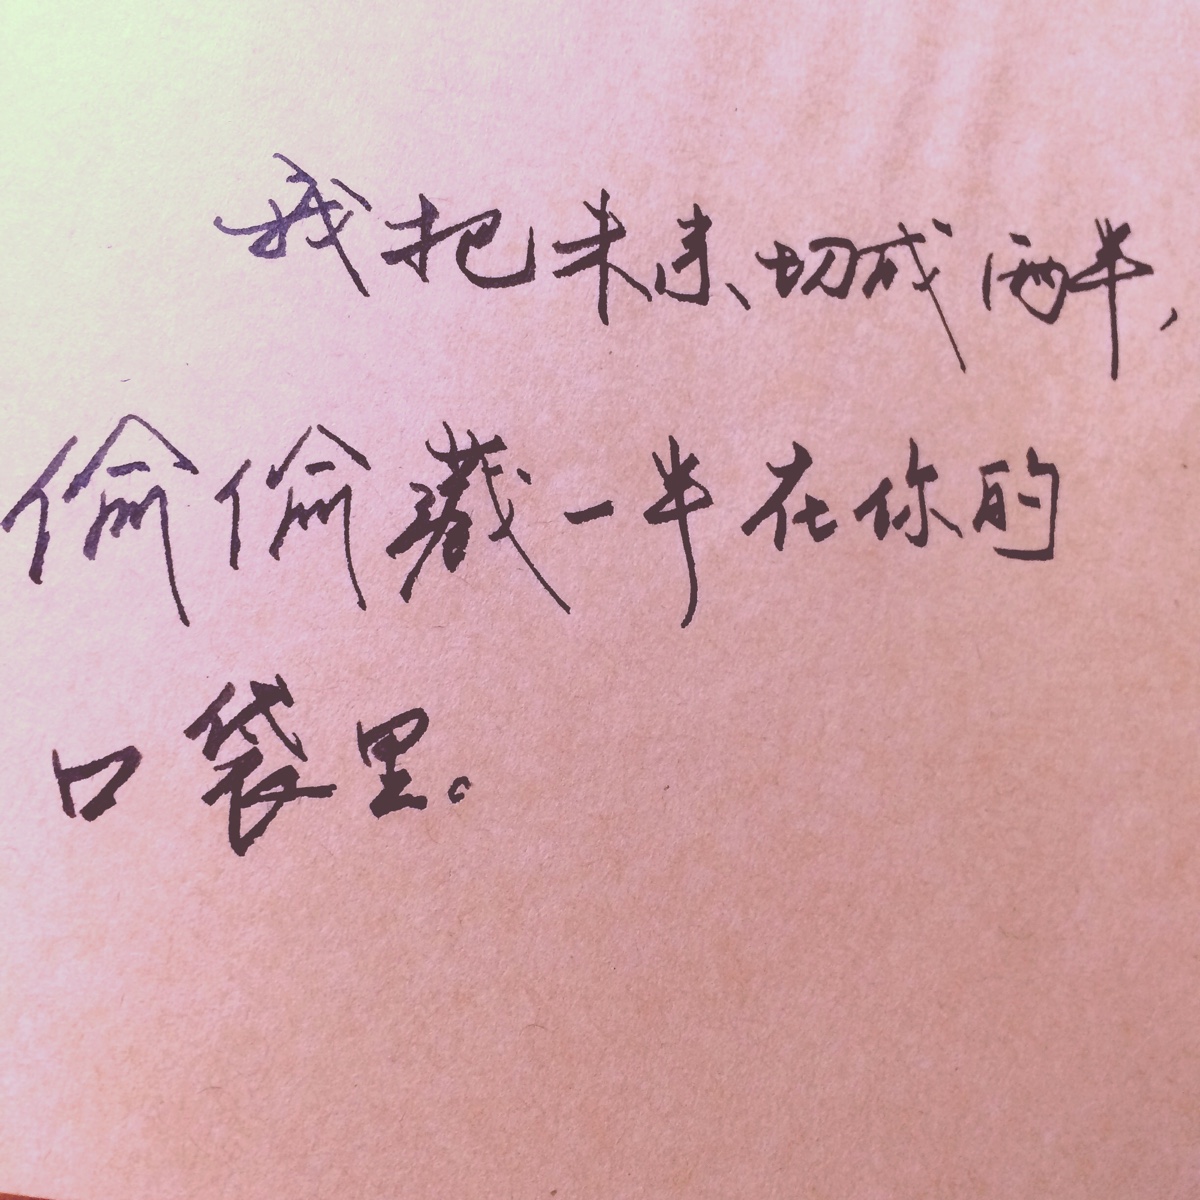 我把未来切成两半，
偷偷藏一半在你的
口袋里。